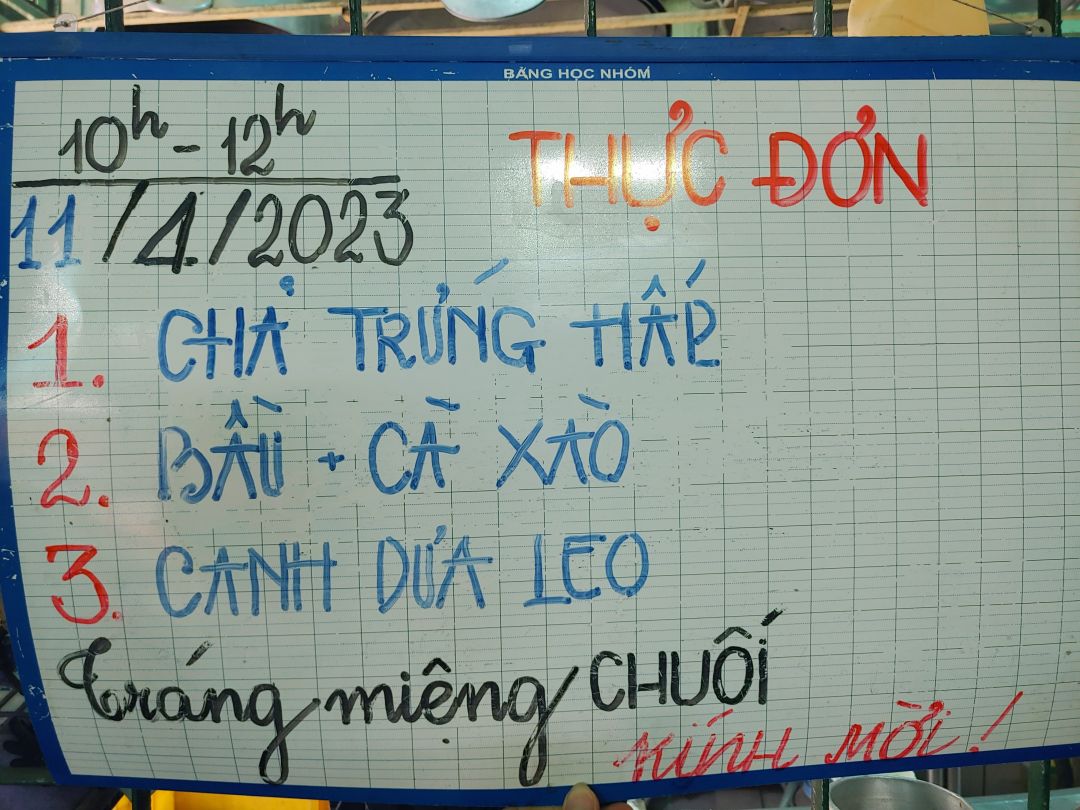 BẢNG HỌC NHÓM
10h - 12h
THỰC ĐƠN
11/4/2023
1. CHẢ TRỨNG HẤP
2. BẦU + CÀ XÀO
3. CANH DƯA LEO
Tráng miệng CHUỐI
KÍNH MỜI!